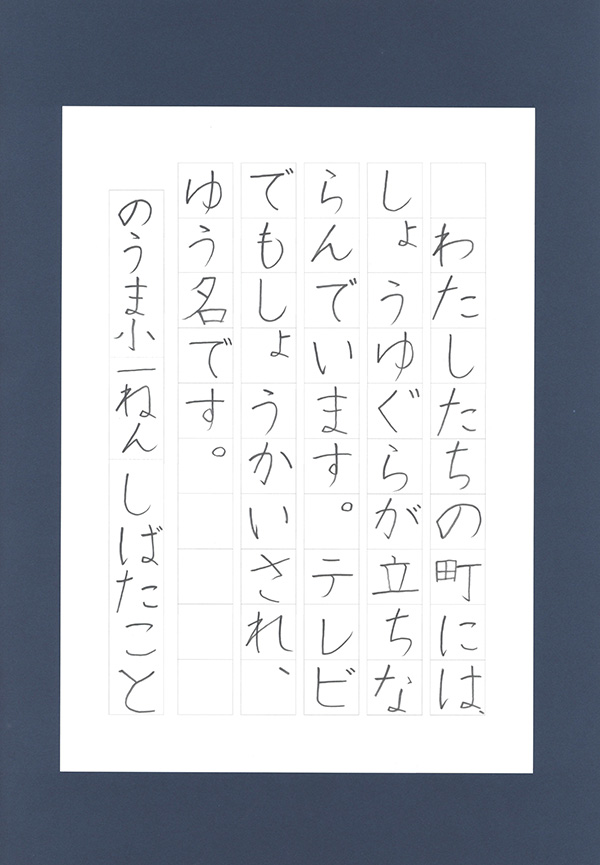 わたしたちの町には、
しょうゆぐらが立ちな
らんでいます。テレビ
でもしょうかいされ、
ゆう名です。
のうま小一ねんしばたこと